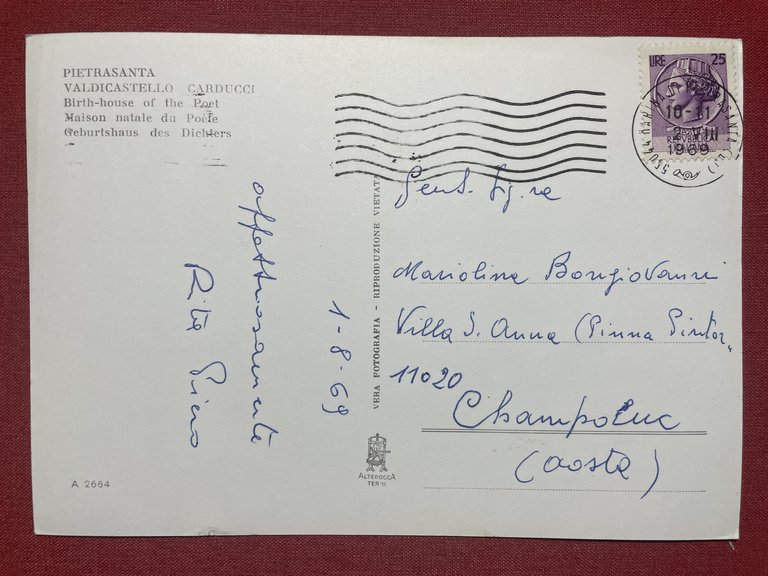 PIETRASANTA
VALDICASTELLO CARDUCCI
Birth-house of the Poet
Maison natale du Poète
Geburtshaus des Dichters
affettuosamente
Rita Piero
1-8-69
A 2664
VERA FOTOGRAFIA - RIPRODUZIONE VIETATA
ALTEROCCA
TERNI
LIRE 25
10-11
2 VIII
1969
Gent. Sig.na
Mariolina Bongiovanni
Villa S. Anna (Pinna Pintor)
11020
Champoluc
(Aosta)